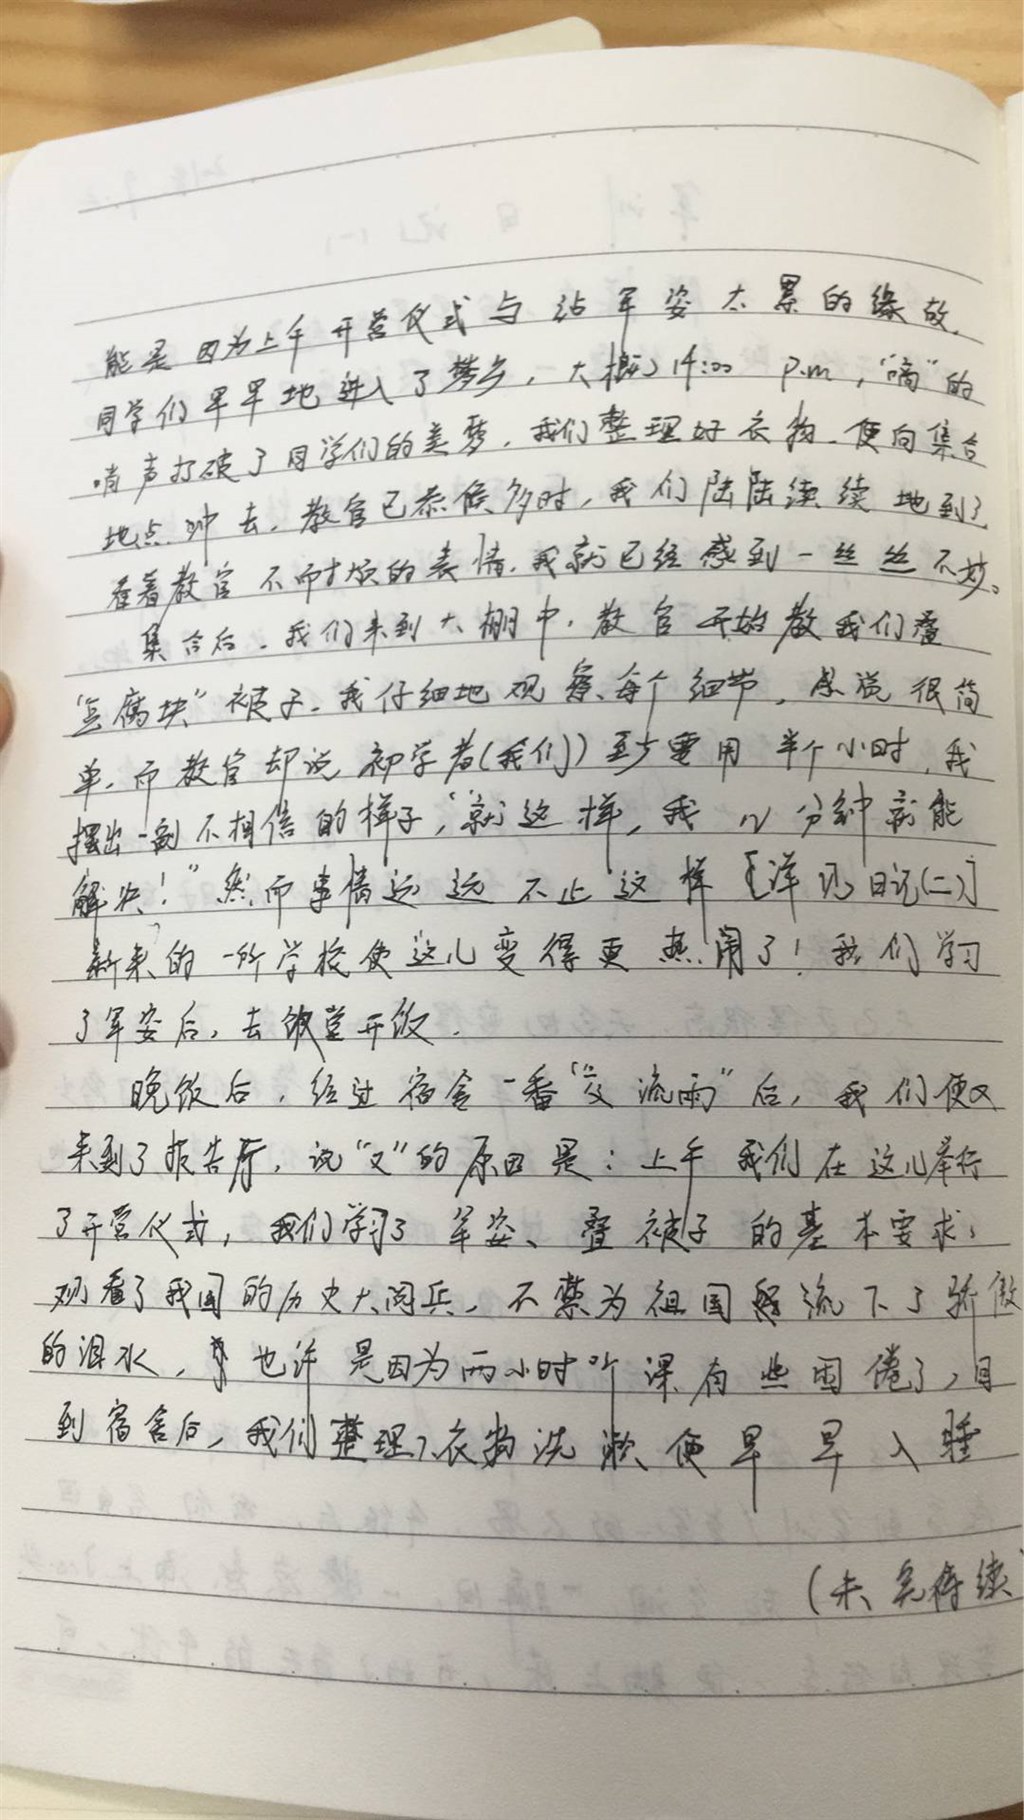 能是因为上午开营仪式与站军姿太累的缘故，
同学们早早地进入了梦乡，大概14:00 p.m，“嘀”的
哨声打破了同学们的美梦，我们整理好衣物，便向集合
地点冲去，教官已恭候多时，我们陆陆续续地到了
看着教官不耐烦的表情，我就已经感到一丝丝不妙。
集合后，我们来到大棚中，教官开始教我们叠
“豆腐块”被子，我仔细地观察每个细节，感觉很简
单，而教官却说初学者(我们)至少要用半个小时，我
摆出一副不相信的样子，“就这样，我 分钟就能
解决！”然而事情远远不止这样[详见日记(二)]
新来的一所学校使这儿变得更热闹了！我们学习
了军姿后，去饭堂开饭．
晚饭后，经过宿舍一番“交流雨”后，我们便又
来到了报告厅，说“又”的原因是：上午我们在这儿举行
了开营仪式，我们学习了军姿、叠被子的基本要求；
观看了我国的历史大阅兵，不禁为祖国流下了骄傲
的泪水，也许是因为两小时听课有些困倦了，回
到宿舍后，我们整理了衣物洗漱便早早入睡
(未完待续